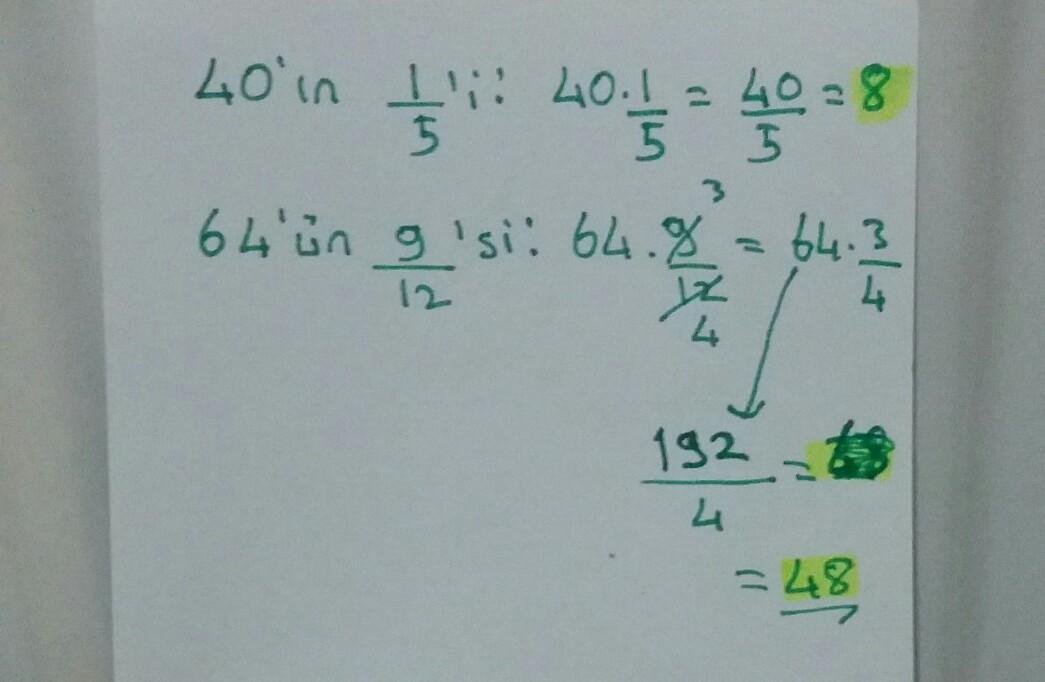 40'ın 1/5 'i: 40.1/5 = 40/5 = 8
64'ün 9/12 'si: 64.9/12 3 4 = 64.3/4
192/4 =
= 48